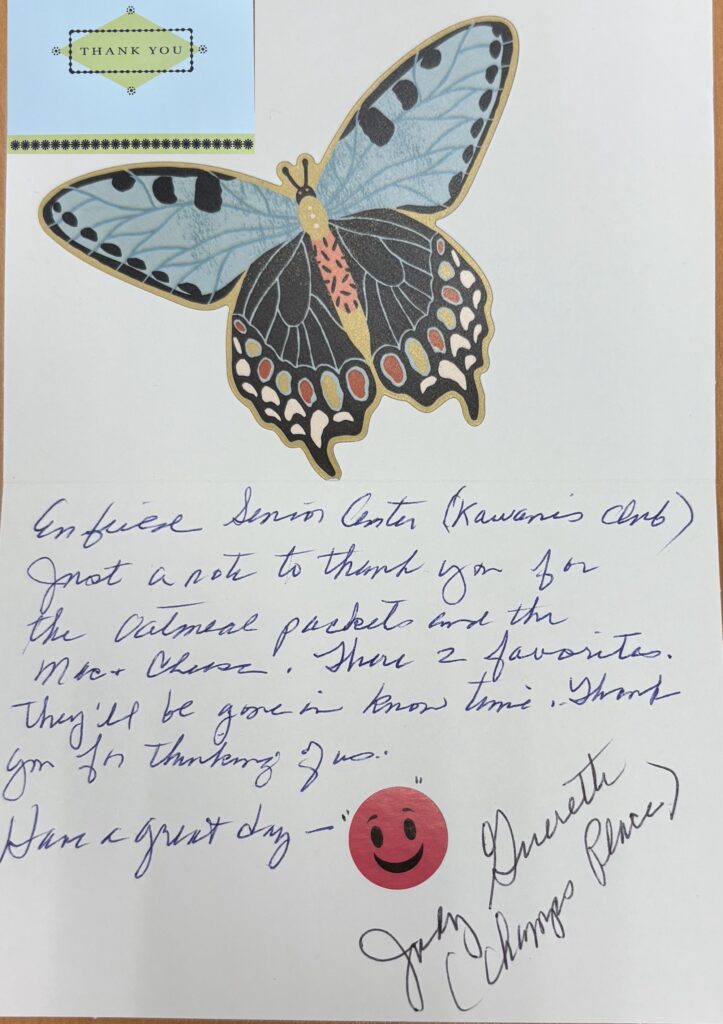 THANK YOU
Enfield Senior Center (Kawanis Club)
Just a note to thank you for
the Oatmeal packets and the
Mac + Cheese. There 2 favorites.
They'll be gone in know time. Thank
you for thinking of us.
Have a great day — " "
Judy
(Champs Place)